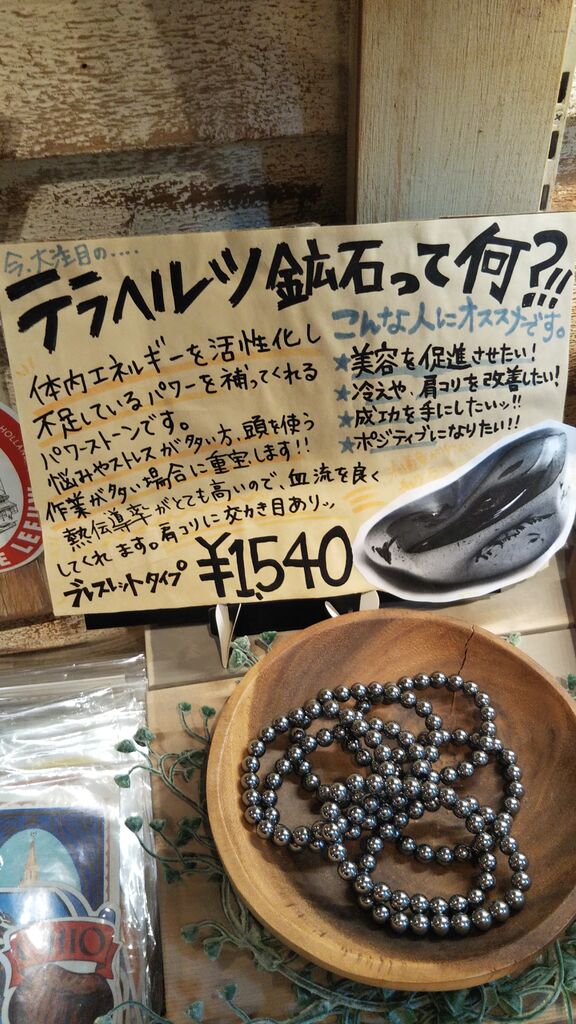 今、大注目の....
テラヘルツ鉱石って何?!!
体内エネルギーを活性化し
不足しているパワーを補ってくれる
パワーストーンです。
悩みやストレスが多い方、頭を使う
作業が多い場合に重宝します!!
熱伝導率がとても高いので、血流を良く
してくれます。肩コリに効き目ありッ
ブレスレットタイプ ¥1,540
こんな人にオススメです。
★美容を促進させたい!
★冷えや、肩コリを改善したい!
★成功を手にしたいッ!!
★ポジティブになりたい!!
HOLLAN
E LEEUW
OHIO